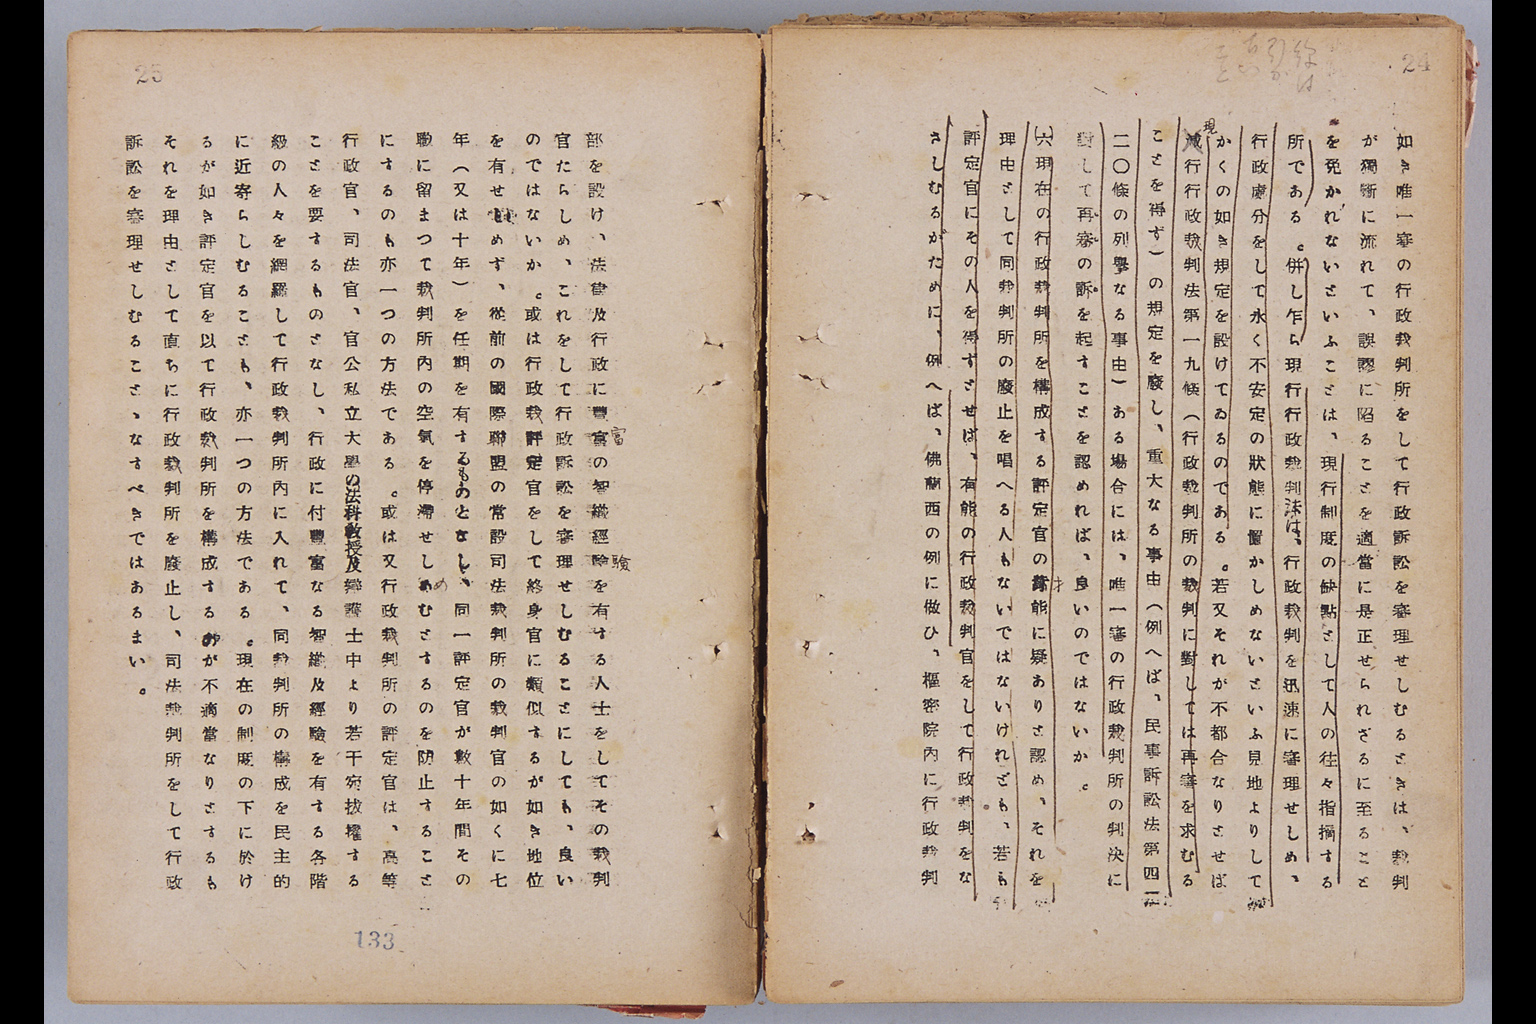 24
如き唯一審の行政裁判所をして行政訴訟を審理せしむるときは、裁判
が獨斷に流れて、誤謬に陷ることを適當に是正せられざるに至ること
を免かれないといふことは、現行制度の缺點として人の往々指摘する
所である。併し乍ら現行行政裁判法は、行政裁判を迅速に審理せしめ、
行政處分をして永く不安定の狀態に置かしめないといふ見地よりして
かくの如き規定を設けてゐるのである。若又それが不都合なりとせば
現行行政裁判法第一九條(行政裁判所の裁判に對しては再審を求むる
ことを得ず)の規定を廢し、重大なる事由(例へば、民事訴訟法第四二
二〇條の列擧なる事由)ある場合には、唯一審の行政裁判所の判決に
對して再審の訴を起すことを認めれば、良いのではないか。
(六)現在の行政裁判所を構成する評定官の才能に疑ありと認め、それを
理由として同裁判所の廢止を唱へる人もないではないけれども、若も
評定官にその人を得ずとせば、有能の行政裁判官をして行政裁判をな
さしむるがために、例へば、佛蘭西の例に做ひ、樞密院內に行政裁判
25
部を設け、法律及行政に豐富の智識經驗を有する人士をしてその裁判
官たらしめ、これをして行政訴訟を審理せしむることにしても、良い
のではないか。或は行政裁評定官をして終身官に類似するが如き地位
を有せしめず、從前の國際聯盟の常設司法裁判所の裁判官の如くに七
年(又は十年)を任期を有するものとなし、同一評定官が數十年間その
職に留まつて裁判所內の空氣を停滯せしめむとするのを防止すること
にするのも亦一つの方法である。或は又行政裁判所の評定官は、高等
行政官、司法官、官公私立大學の法科敎授及辯護士中より若干宛拔擢する
ことを要するものとなし、行政に付豐富なる智識及經驗を有する各階
級の人々を網羅して行政裁判所內に入れて、同裁判所の構成を民主的
に近寄らしむることも、亦一つの方法である。現在の制度の下に於け
るが如き評定官を以て行政裁判所を構成するのが不適當なりとするも
それを理由として直ちに行政裁判所を廢止し、司法裁判所をして行政
訴訟を審理せしむること、なすべきではあるまい。
133